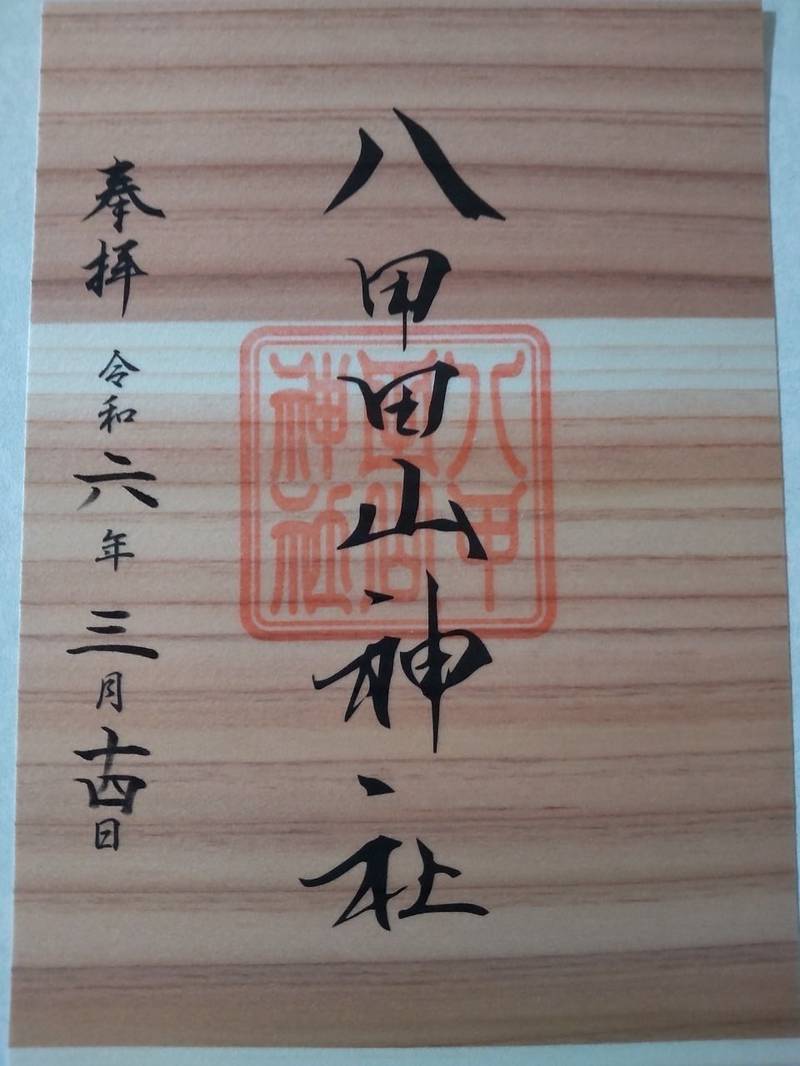 八甲田山神社
奉拝 令和六年三月十四日
八甲
神社